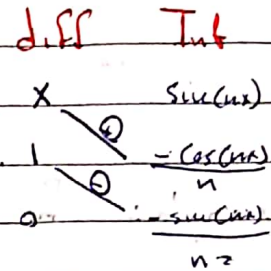 diff Int
x sin(nx)
⊕
1 - cos(nx)/n
⊖
0 - sin(nx)/n²